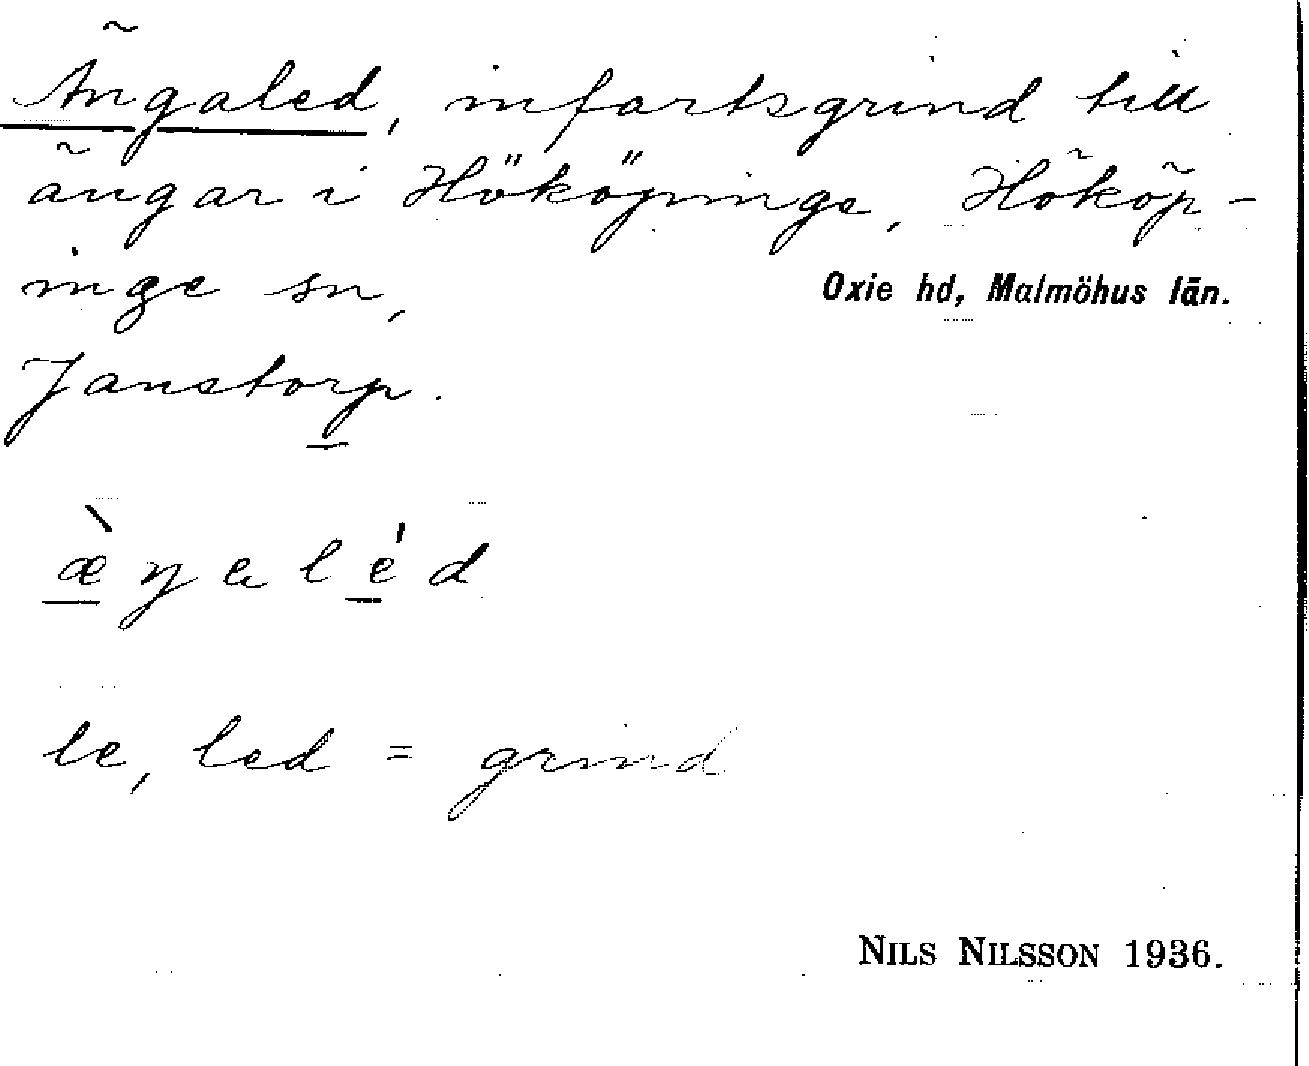 Ängaled, infartsgrind till
ängar i Hököpinge, Hököp-
inge sn,
Oxie hd, Malmöhus län.
Janstorp.
æ̀ŋalé̱d
le, led = grind
NILS NILSSON 1936.